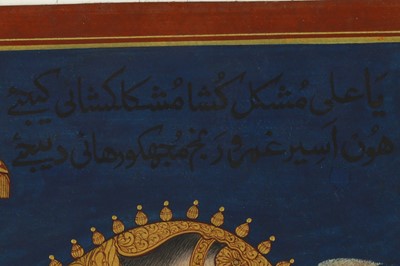 یا علی مشکل کشا مشکلکشائی کیجئے
ھون اسیر غم و رنج مجھکو رھائی دیجئے